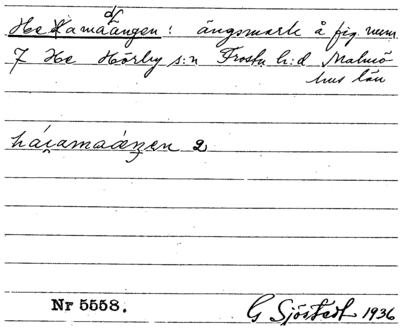 Hedamaängen: ängsmark å fig. num
7 He Hörby s:n Frosta h:d Malmö
hus län
háɹamaáŋen 2
Nr 5558. G Sjöstedt 1936